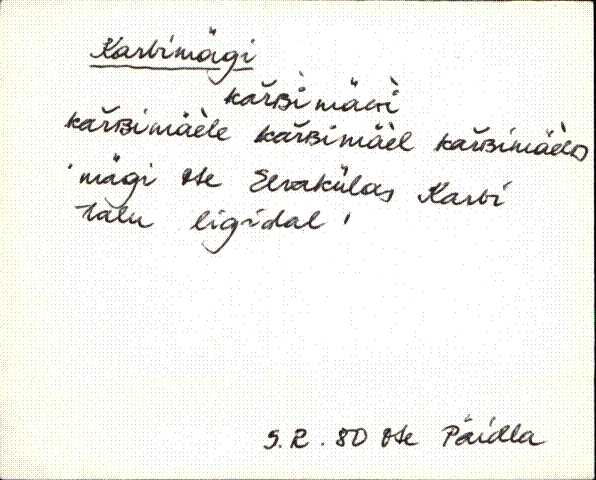 Karbimägi
kařʙì mäɢì
kařʙimäèle kařʙimäèl kařʙimäèls
'mägi Ote Elvakülas Karbi
talu ligidal'
S.R. 80 Ote Päidla